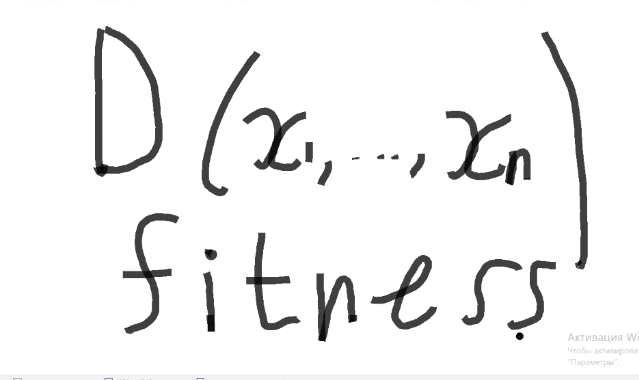 D(x₁, ..., xₙ)
fitness
Активация Wi
Чтобы активироват
"Параметры".